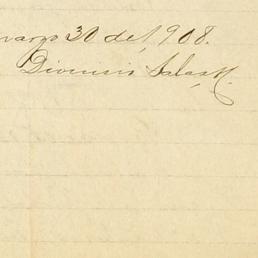 marzo 30 de 1,908.
Dionisio Salas